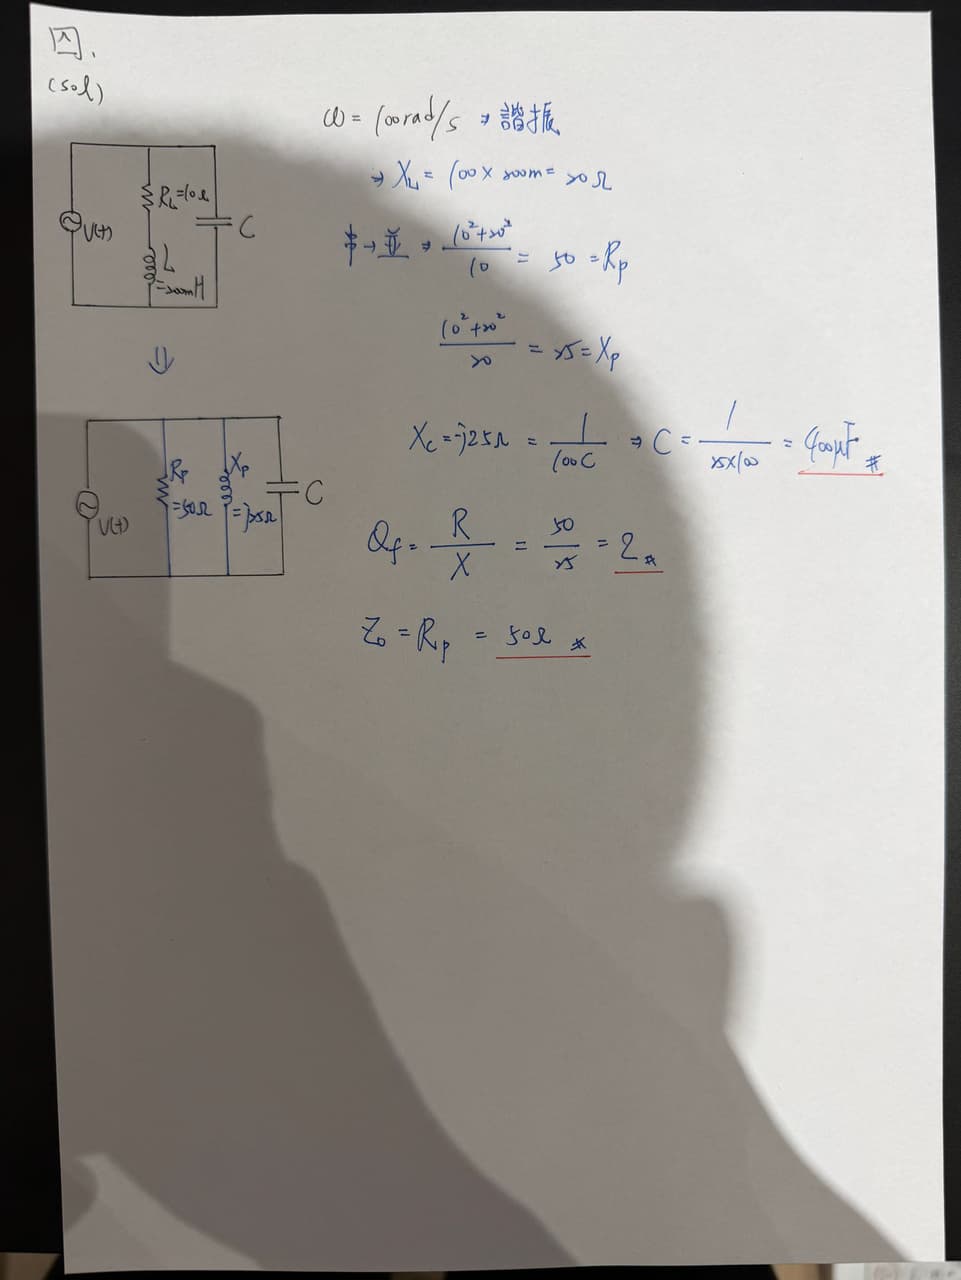 四.
(sol)
ω = 100 rad/s → 諧振
→ X_L = 100 × 200m = 20Ω
串→並 → (10²+20²)/10 = 50 = Rp
(10²+20²)/20 = 25 = Xp
Xc = -j25Ω = 1/(100C) → C = 1/(25×100) = 400μF #
Qf = R/X = 50/25 = 2 #
Z₀ = Rp = 50Ω #
V(t)
R_L=10Ω
L
=200mH
C
⇓
V(t)
Rp
=50Ω
Xp
=j25Ω
C